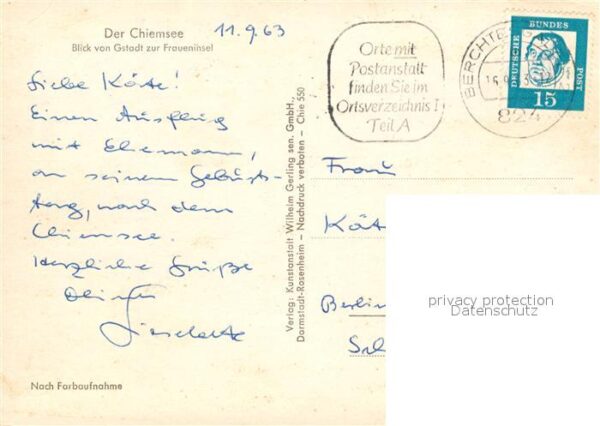 Der Chiemsee
Blick von Gstadt zur Fraueninsel
11.9.63
Liebe Käte!
Einen Ausflug
mit Ehemann,
an seinem Geburts-
tag, nach dem
Chiemsee.
Herzliche Grüße
Nach Farbaufnahme
Verlag: Kunstanstalt Wilhelm Gerling sen. GmbH.,
Darmstadt-Rosenheim – Nachdruck verboten – Chie 550
Orte mit
Postanstalt
finden Sie im
Ortsverzeichnis I
Teil A
824
DEUTSCHE BUNDES POST
15
Frau
Käte
Berlin
privacy protection
Datenschutz